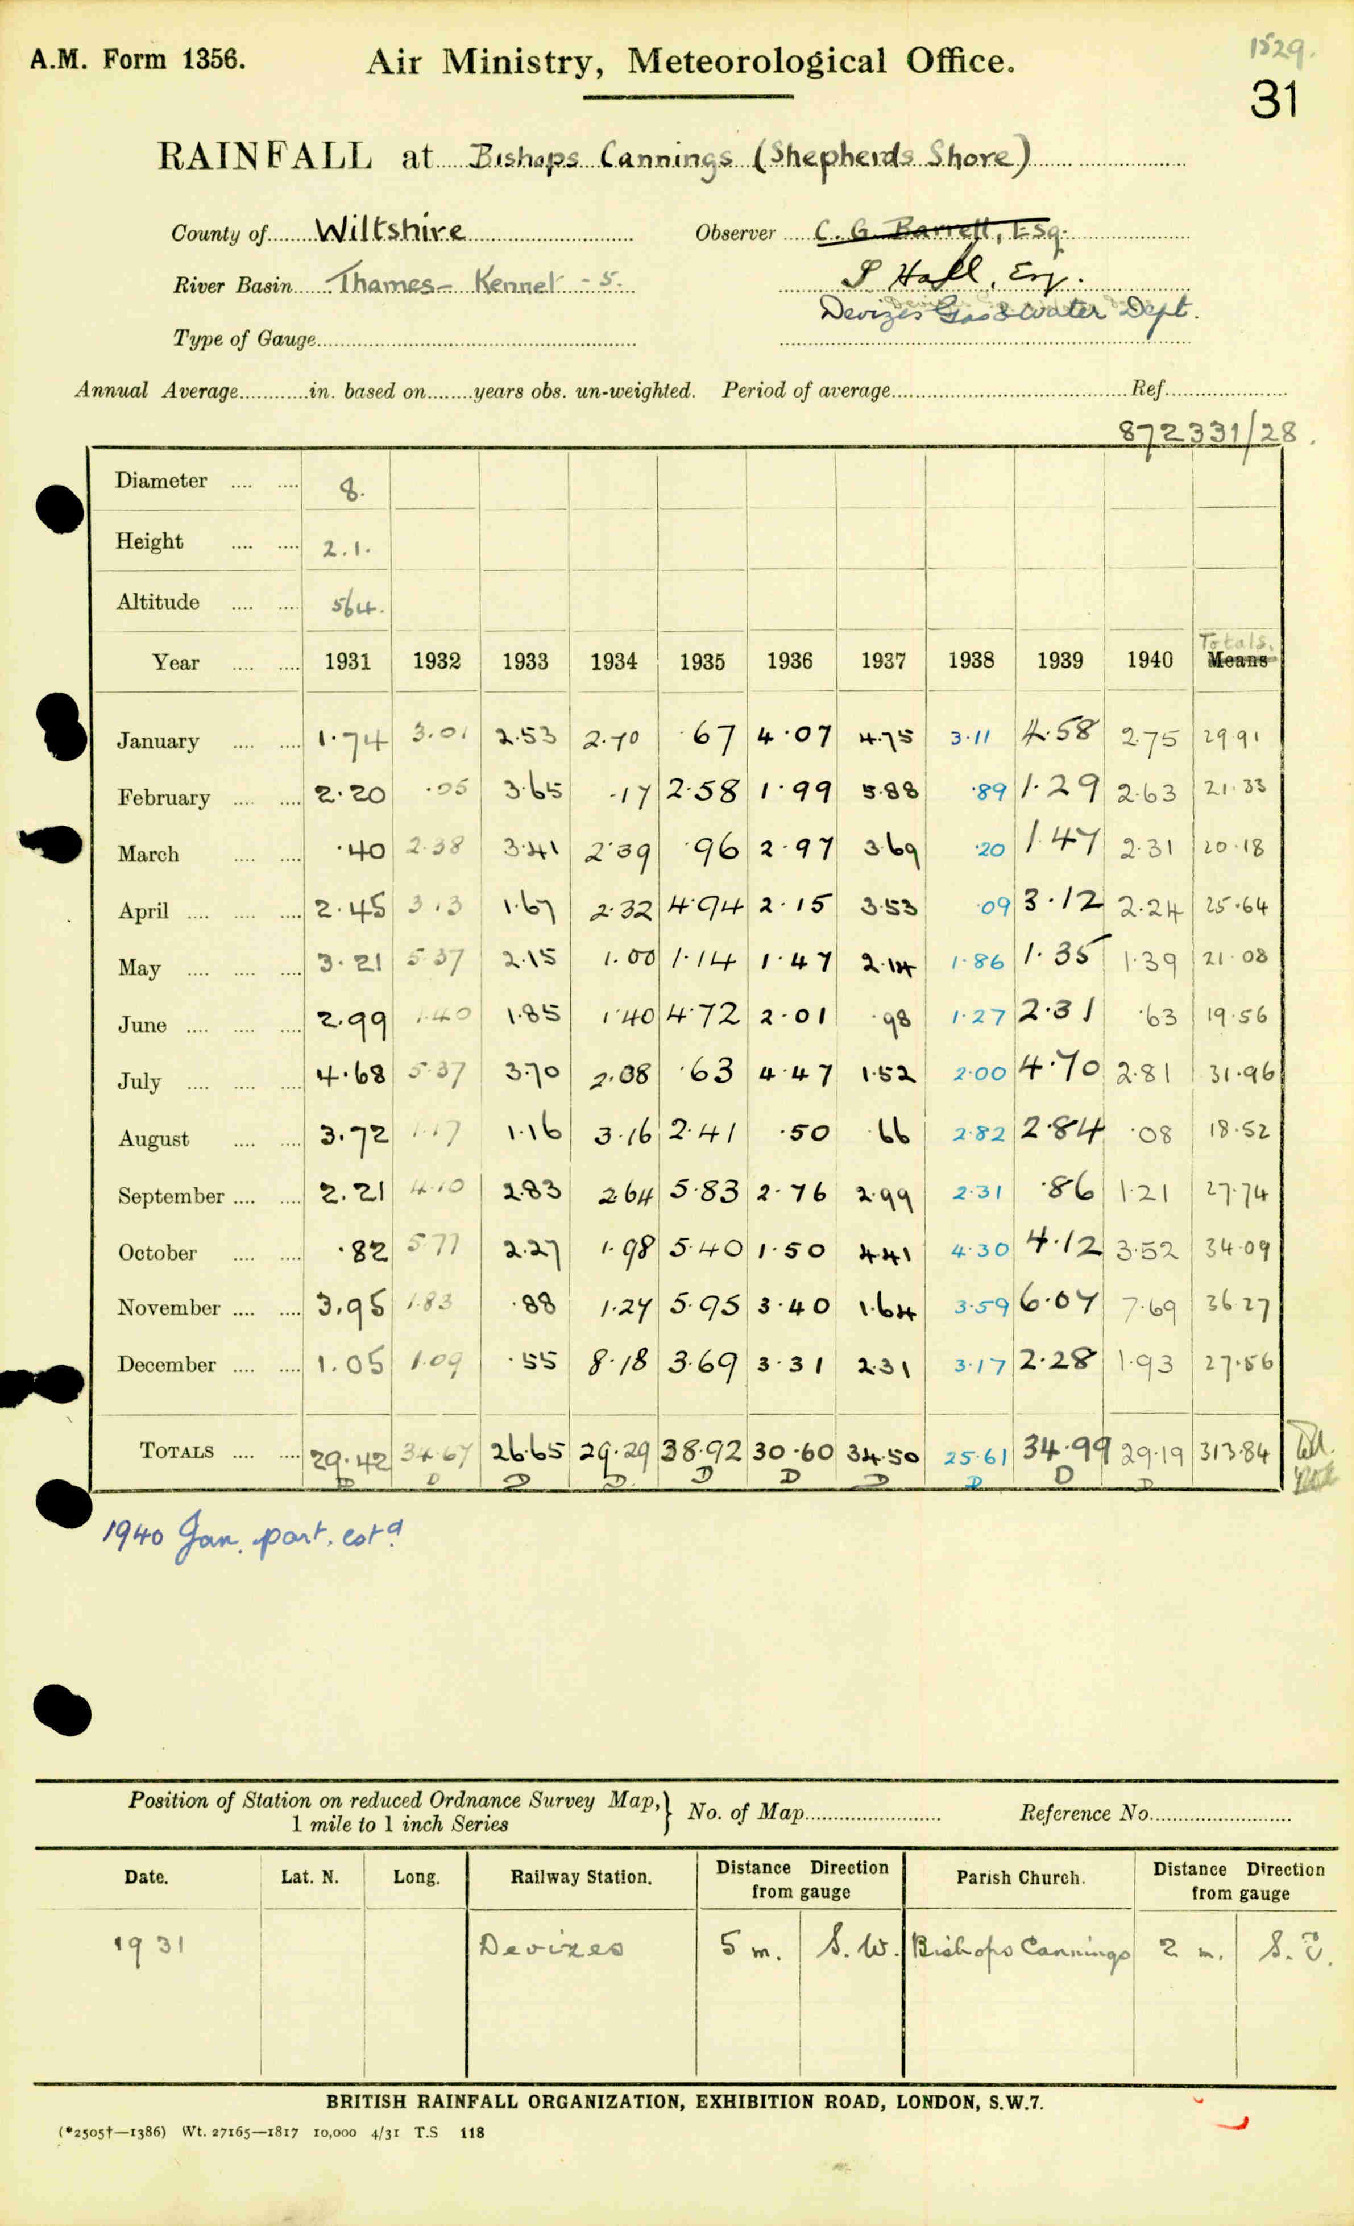 1529.
A.M. Form 1356. Air Ministry, Meteorological Office.
31
RAINFALL at Bishops Cannings (Shepherds Shore)
County of Wiltshire Observer C. G. Barrett, Esq.
River Basin Thames - Kennet - 5. S Hall, Esq.
Devizes Gas & Water Dept.
Type of Gauge
Annual Average in. based on years obs. un-weighted. Period of average Ref.
872331/28.
Diameter 8.
Height 2.1.
Altitude 564.
Totals.
Year 1931 1932 1933 1934 1935 1936 1937 1938 1939 1940 Means
January 1.74 3.01 2.53 2.70 .67 4.07 4.75 3.11 4.58 2.75 29.91
February 2.20 .05 3.65 .17 2.58 1.99 5.88 .89 1.29 2.63 21.33
March .40 2.38 3.41 2.39 .96 2.97 3.69 .20 1.47 2.31 20.18
April 2.45 3.13 1.67 2.32 4.94 2.15 3.53 .09 3.12 2.24 25.64
May 3.21 5.37 2.15 1.00 1.14 1.47 2.14 1.86 1.35 1.39 21.08
June 2.99 1.40 1.85 1.40 4.72 2.01 .98 1.27 2.31 .63 19.56
July 4.68 5.37 3.70 2.08 .63 4.47 1.52 2.00 4.70 2.81 31.96
August 3.72 1.17 1.16 3.16 2.41 .50 .66 2.82 2.84 .08 18.52
September 2.21 4.10 2.83 2.64 5.83 2.76 2.99 2.31 .86 1.21 27.74
October .82 5.77 2.27 1.98 5.40 1.50 4.41 4.30 4.12 3.52 34.09
November 3.95 1.83 .88 1.27 5.95 3.40 1.64 3.59 6.07 7.69 36.27
December 1.05 1.09 .55 8.18 3.69 3.31 2.31 3.17 2.28 1.93 27.56
TOTALS 29.42 34.67 26.65 29.29 38.92 30.60 34.50 25.61 34.99 29.19 313.84
D D D D. D D D D D D
1940 Jan. part. estd.
Position of Station on reduced Ordnance Survey Map, 1 mile to 1 inch Series } No. of Map Reference No.
Date. Lat. N. Long. Railway Station. Distance Direction from gauge Parish Church. Distance Direction from gauge
1931 Devizes 5 m. S.W. Bishops Cannings 2 m.
BRITISH RAINFALL ORGANIZATION, EXHIBITION ROAD, LONDON, S.W.7.
(*2505†—1386) Wt. 27165—1817 10,000 4/31 T.S 118